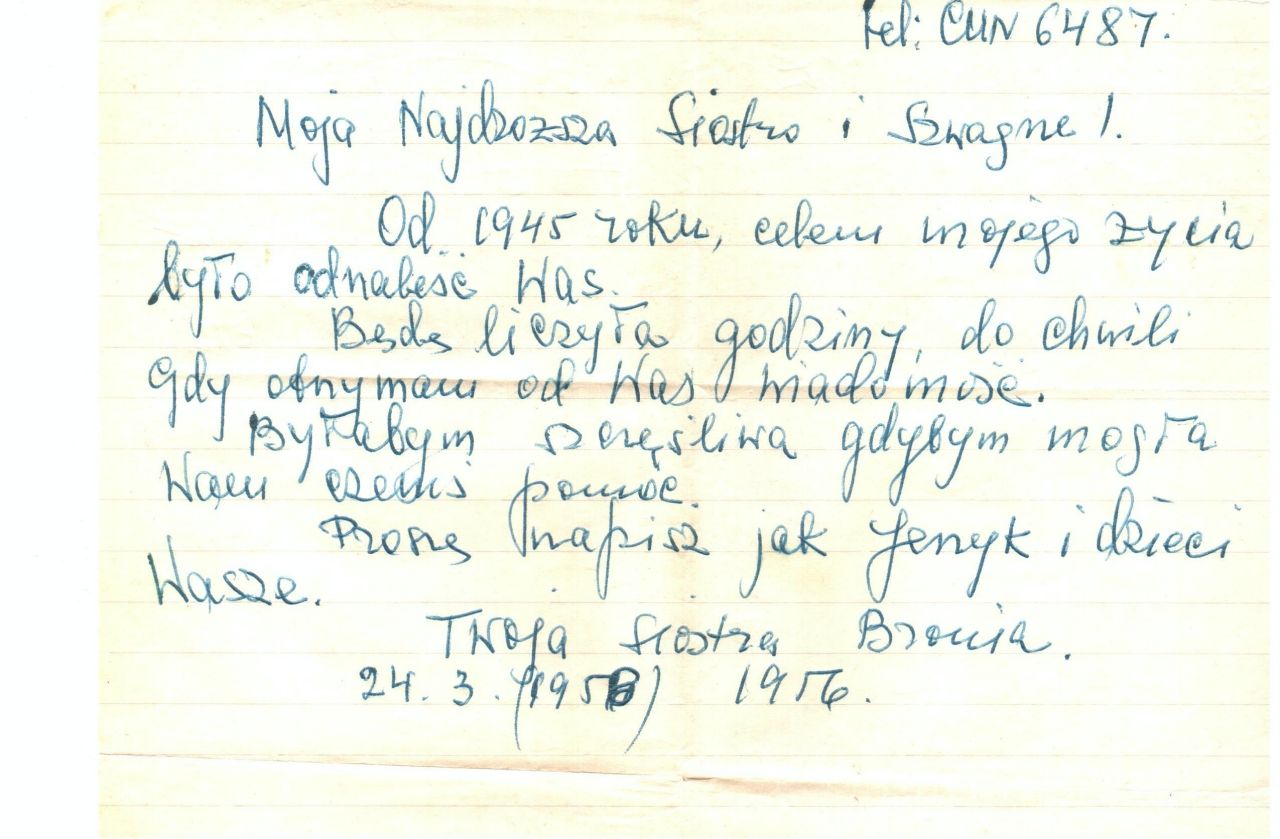 tel: CUN 6487.
Moja Najdrozsza Siostro i Szwagrze!.
Od 1945 roku, celem mojego zycia
było odnaleść Was.
Będę liczyła godziny, do chwili
Gdy otrzymam od Was wiadomość.
Byłabym szczęśliwa gdybym mogła
Wam czemś pomóc.
Proszę napisz jak Jerzyk i dzieci
Wasze.
Twoja Siostra Bronia.
24. 3. (1956) 1956.